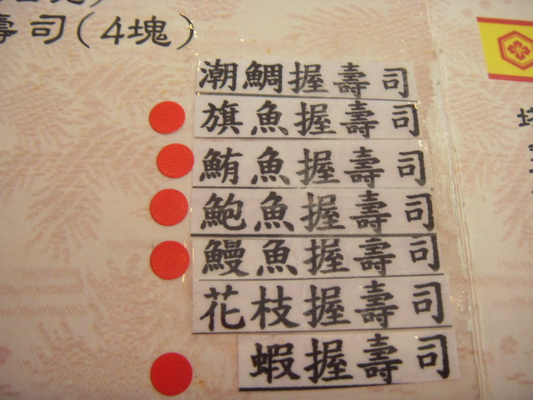 壽司(4塊)
潮鯛握壽司
旗魚握壽司
鮪魚握壽司
鮑魚握壽司
鰻魚握壽司
花枝握壽司
蝦握壽司